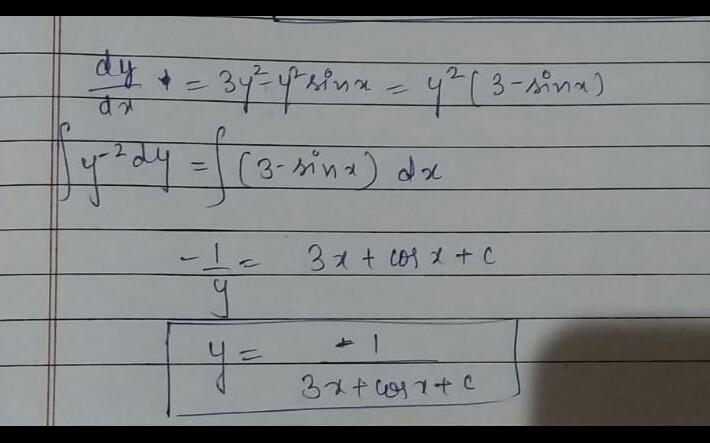 dy/dx = 3y² - y² sinx = y² (3 - sinx)
∫ y⁻² dy = ∫ (3 - sinx) dx
- 1/y = 3x + cosx + c
y = -1/(3x + cosx + c)